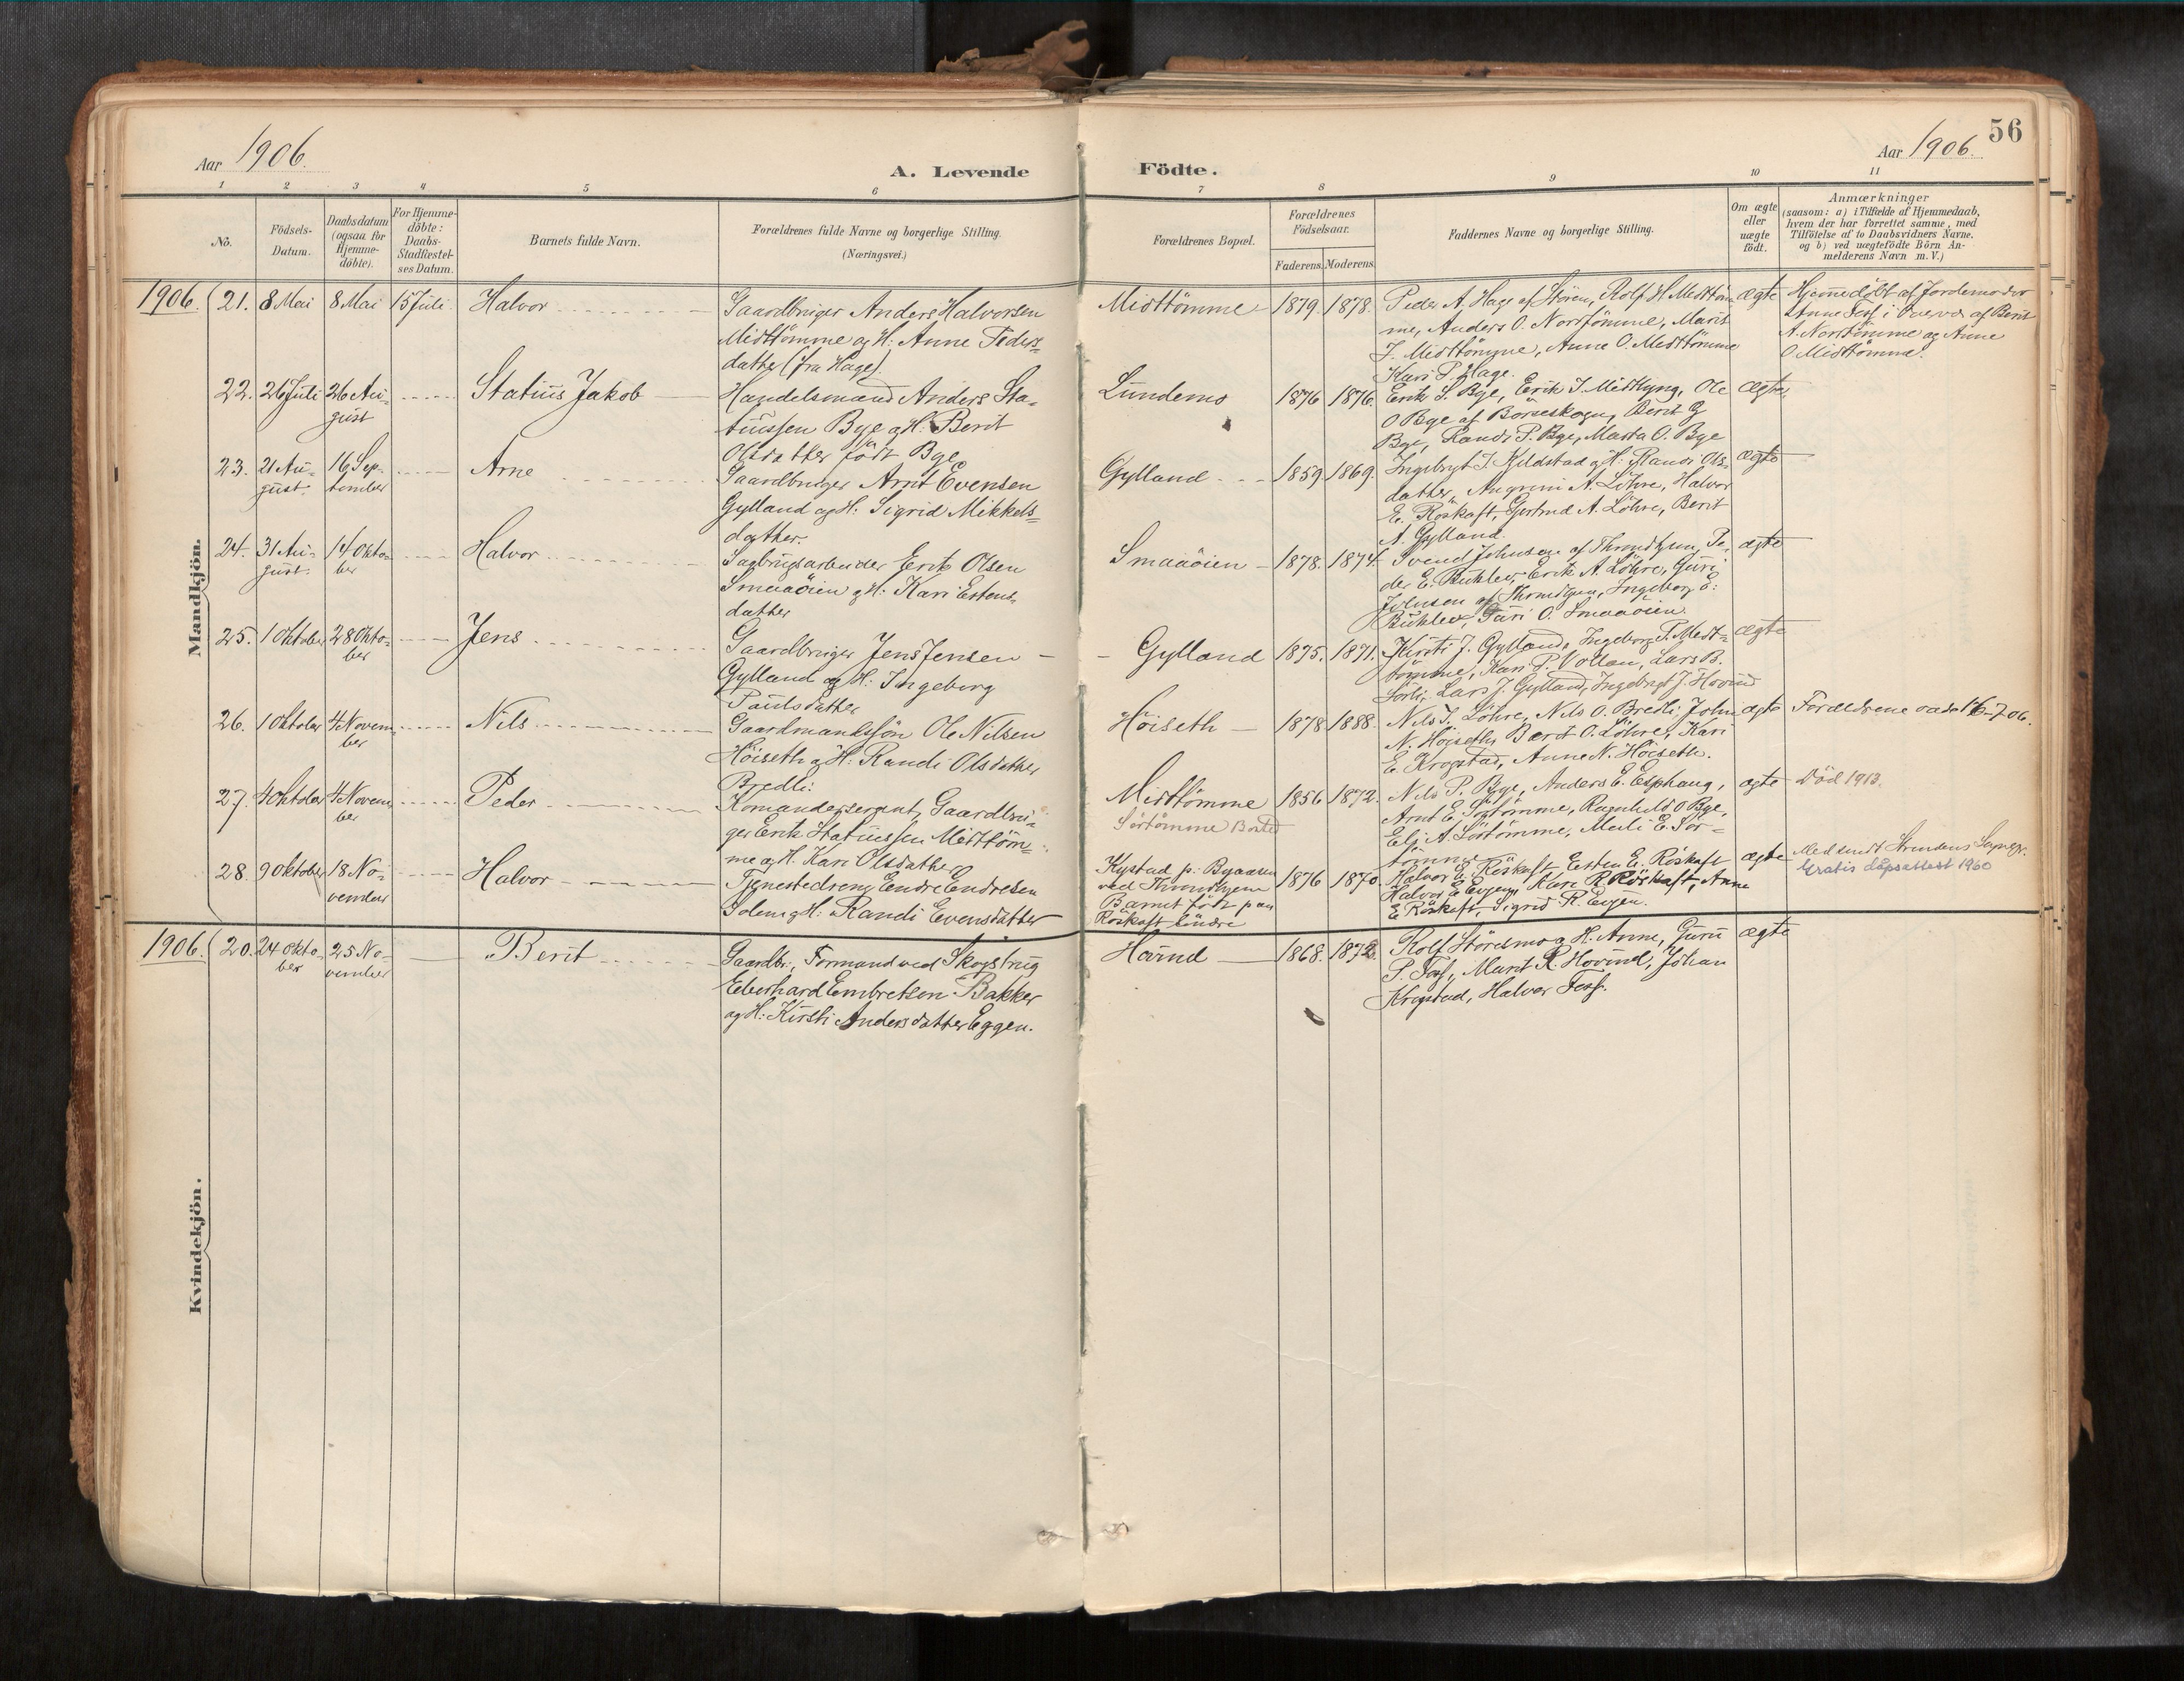 56
Aar 1906.
A. Levende
Födte.
Aar 1906.
1 2 3 4 5 6 7 8 9 10 11
No.
Födsels-
Datum.
Daabsdatum
(ogsaa for
Hjemme-
döbte).
For Hjemme-
döbte:
Daabs-
Stadfæstel-
ses Datum.
Barnets fulde Navn.
Forældrenes fulde Navne og borgerlige Stilling.
(Næringsvei.)
Forældrenes Bopæl.
Forældrenes
Födselsaar.
Faderens. Moderens.
Faddernes Navne og borgerlige Stilling.
Om ægte
eller
uægte
födt.
Anmærkninger
(saasom: a) i Tilfælde af Hjemmedaab,
hvem der har forrettet samme, med
Tilföielse af to Daabsvidners Navne.
og b) ved uægtefödte Börn An-
melderens Navn m. V.)
Mandkjön.
1906. 21. 8 Mai 8 Mai 15 Juli Halvor
Gaardbruger Anders Halvorsen
Midttömme og H: Anne Peders-
datter (fra Hage).
Midttömme 1879. 1878.
Peder A. Hage af Stören, Rolf H. Midttöm-
me, Anders O. Nordtömme, Marit
J. Midttömme, Anne O. Midttömme
Kari P. Hage.
ægte
Hjemmedöbt af Jordemoder
Anne Foss i Overvær af Berit
A. Nordtömme og Anne
O. Midttömme.
22. 26 Juli 26 Au-
gust
Statius Jakob
Handelsmand Anders Sta-
tiussen Bye og H. Berit
Olsdatter født Bye
Lundemo 1876 1876.
Erik S. Bye, Erik J. Midtlyng, Ole
O Bye af Börseskogn, Berit G
Bye, Randi P. Bye, Marta O. Bye
ægte
23. 21 Au-
gust.
16 Sep-
tember
Arne
Gaardbruger Arnt Evensen
Gylland og H. Sigrid Mikkels-
datter.
Gylland 1859 1869.
Ingebrigt J. Kjeldstad og H: Randi Ols-
datter, Angrim A. Löhre, Halvor
E. Röskaft, Gertrud A. Löhre, Berit
A. Gylland.
ægte
24. 31 Au-
gust.
14 Okto-
ber
Halvor
Sagbrugsarbeider Erik Olsen
Smaaöien og H. Kari Estens-
datter
Smaaöien 1878. 1874.
Svend Johnsen af Throndhjem, Pe-
der E. Buhlev, Erik A. Löhre, Guri
Johnsen af Throndhjem, Ingeborg E.
Buhlev, Guri O. Smaaöien.
ægte
25. 1 Oktober 28 Okto-
ber
Jens
Gaardbruger Jens Jensen
Gylland og H. Ingeborg
Paulsdatter
Gylland 1875. 1871.
Kirsti J. Gylland, Ingeborg P. Midt-
tömme, Kari P. Vollan, Lars B.
Sörli, Lars J. Gylland, Ingebrigt J. Hovind
ægte
26. 1 Oktober 4 Novem-
ber
Nils
Gaardmandssön Ole Nilsen
Höiseth og H. Randi Olsdatter
Bredli.
Höiseth 1878 1888.
Nils J. Löhre, Nils O. Bredli, John
N. Höiseth, Berit O. Löhre, Kari
E. Krogstad, Anne N. Höiseth.
ægte
Forældrene viede 16-7-06.
27. 4 Oktober 4 Novem-
ber
Peder
Komandersergant, Gaardbru-
ger Erik Statiussen Midttöm-
me og H. Kari Olsdatter
Midttömme
Sörtömme Bosted
1856 1872.
Nils P. Bye, Anders E. Esphaug,
Arnt E. Sörtömme, Ragnhild O Bye,
Eli A. Sörtömme, Meli E. Sör-
tömme
ægte
Död 1913.
28. 9 Oktober 18 No-
vember
Halvor
Tjenestedreng Endre Endresen
Solem og H: Randi Evensdatter
Kystad p: Byaasen
ved Throndhjem
Barnet født paa
Röskaft lindre
1876 1870.
Halvor E. Röskaft, Esten E. Röskaft
Halvor E Evjen, Kari R Röskaft, Anne
E Röskaft, Sigrid R. Evjen.
ægte
Gratis dåpsattest 1960
Kvindekjön.
1906. 20. 24 Okto-
ber
25 No-
vember
Berit
Gaardbr., Formand ved Skogsbrug
Eberhard Embretsen Bakker
og H: Kirsti Andersdatter Eggen.
Havind 1868. 1872.
Rolf Störesmo og H. Anne, Guru
P. Foss, Marit R. Hovind, Johan
Krogstad, Halvor Foss.
ægte